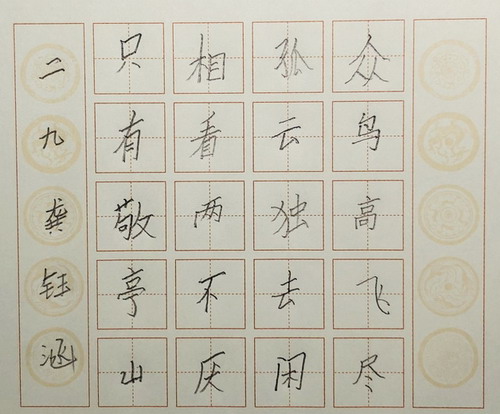 众鸟高飞尽
孤云独去闲
相看两不厌
只有敬亭山
二九龚钰涵